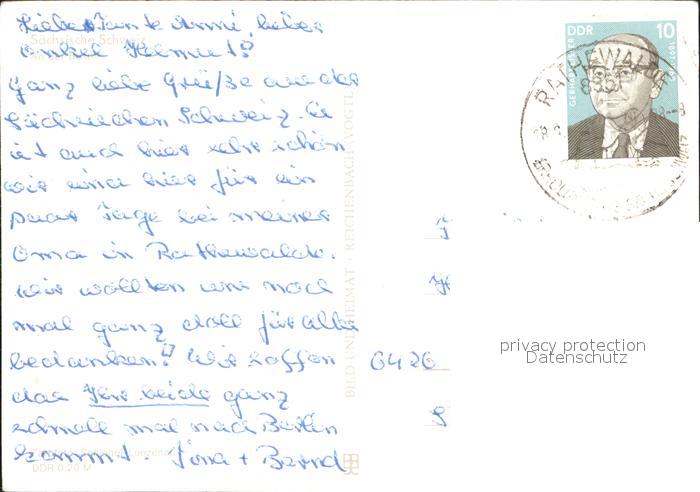 Liebe Tante Anni, lieber
Onkel Helmut!
Ganz liebe Grüße aus der
Sächsischen Schweiz. Es
ist auch hier sehr schön
wir sind hier für ein
paar Tage bei meiner
Oma in Rathewalde.
Wir wollten uns noch
mal ganz doll für alles
bedanken! Wir hoffen
das Ihr beide ganz
schnell mal nach Berlin
kommt.
+ Bernd
Sächsische Schweiz
DDR 0,20 M
BILD UND HEIMAT · REICHENBACH (VOGTL
DDR 10
RATHEWALDE
8351
6426
privacy protection
Datenschutz